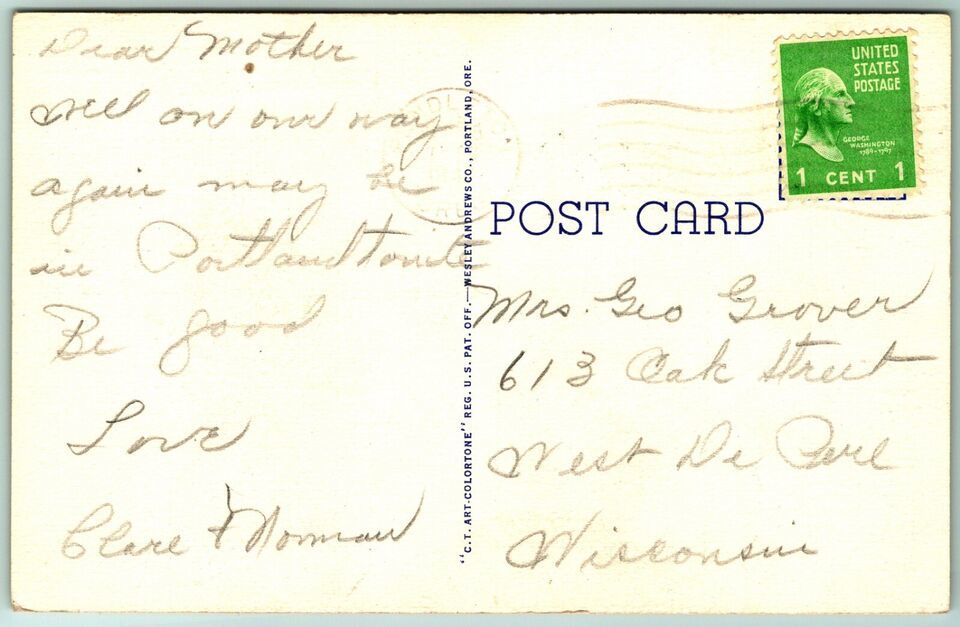 Dear Mother
well on our way
again may be
in Portland tonite
Be good
Love
Clare & Norman
"C.T. ART-COLORTONE" REG. U.S. PAT. OFF.—WESLEY ANDREWS CO., PORTLAND, ORE.
UNITED
STATES
POSTAGE
GEORGE
WASHINGTON
1789-1797
1 CENT 1
POST CARD
Mrs. Geo Grover
613 Oak Street
West De Pere
Wisconsin